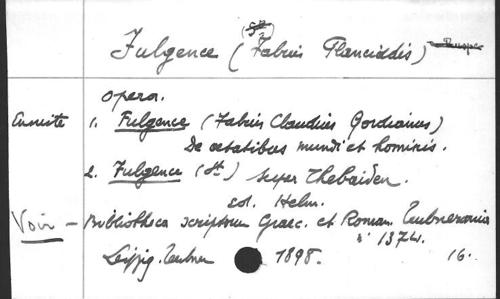 Fulgence (Fabius Planciadis)
Opera.
Ensuite 1. Fulgence (Fabius Claudius Gordianus)
De aetatibus mundi et hominis.
2. Fulgence (St) super Thebaiden.
ed. Helm.
Voir - Bibliotheca scriptorum Graec. et Roman. Teubneriana
n° 1374.
Leipzig. Teubner 1898. 16.